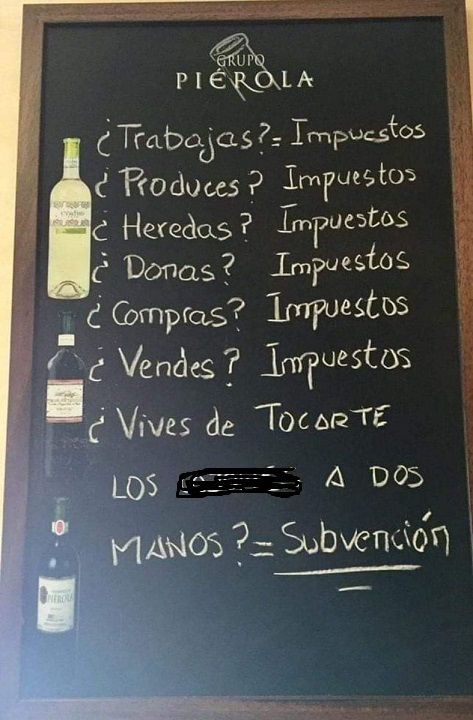 GRUPO
PIÉROLA
¿Trabajas?= Impuestos
¿Produces? Impuestos
¿Heredas? Impuestos
¿Donas? Impuestos
¿Compras? Impuestos
¿Vendes? Impuestos
¿Vives de TOCARTE
LOS A DOS
MANOS?= Subvención
PIÉROLA